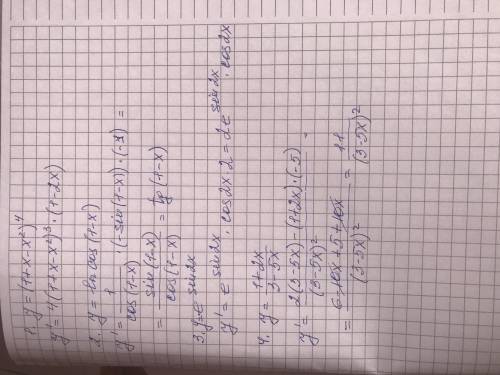 1. y=(1+x-x²)⁴
y'=4(1+x-x²)³·(1-2x)
2. y=ln cos(1-x)
y'=1/cos(1-x)·(-sin(1-x))·(-1)=
=sin(1-x)/cos(1-x)=tg(1-x)
3. y=e^sin2x
y'=e^sin2x·cos2x·2=2e^sin2x·cos2x
4. y=(1+2x)/(3-5x)
y'=(2(3-5x)-(1+2x)·(-5))/(3-5x)²=
=(6-10x+5+10x)/(3-5x)²=11/(3-5x)²